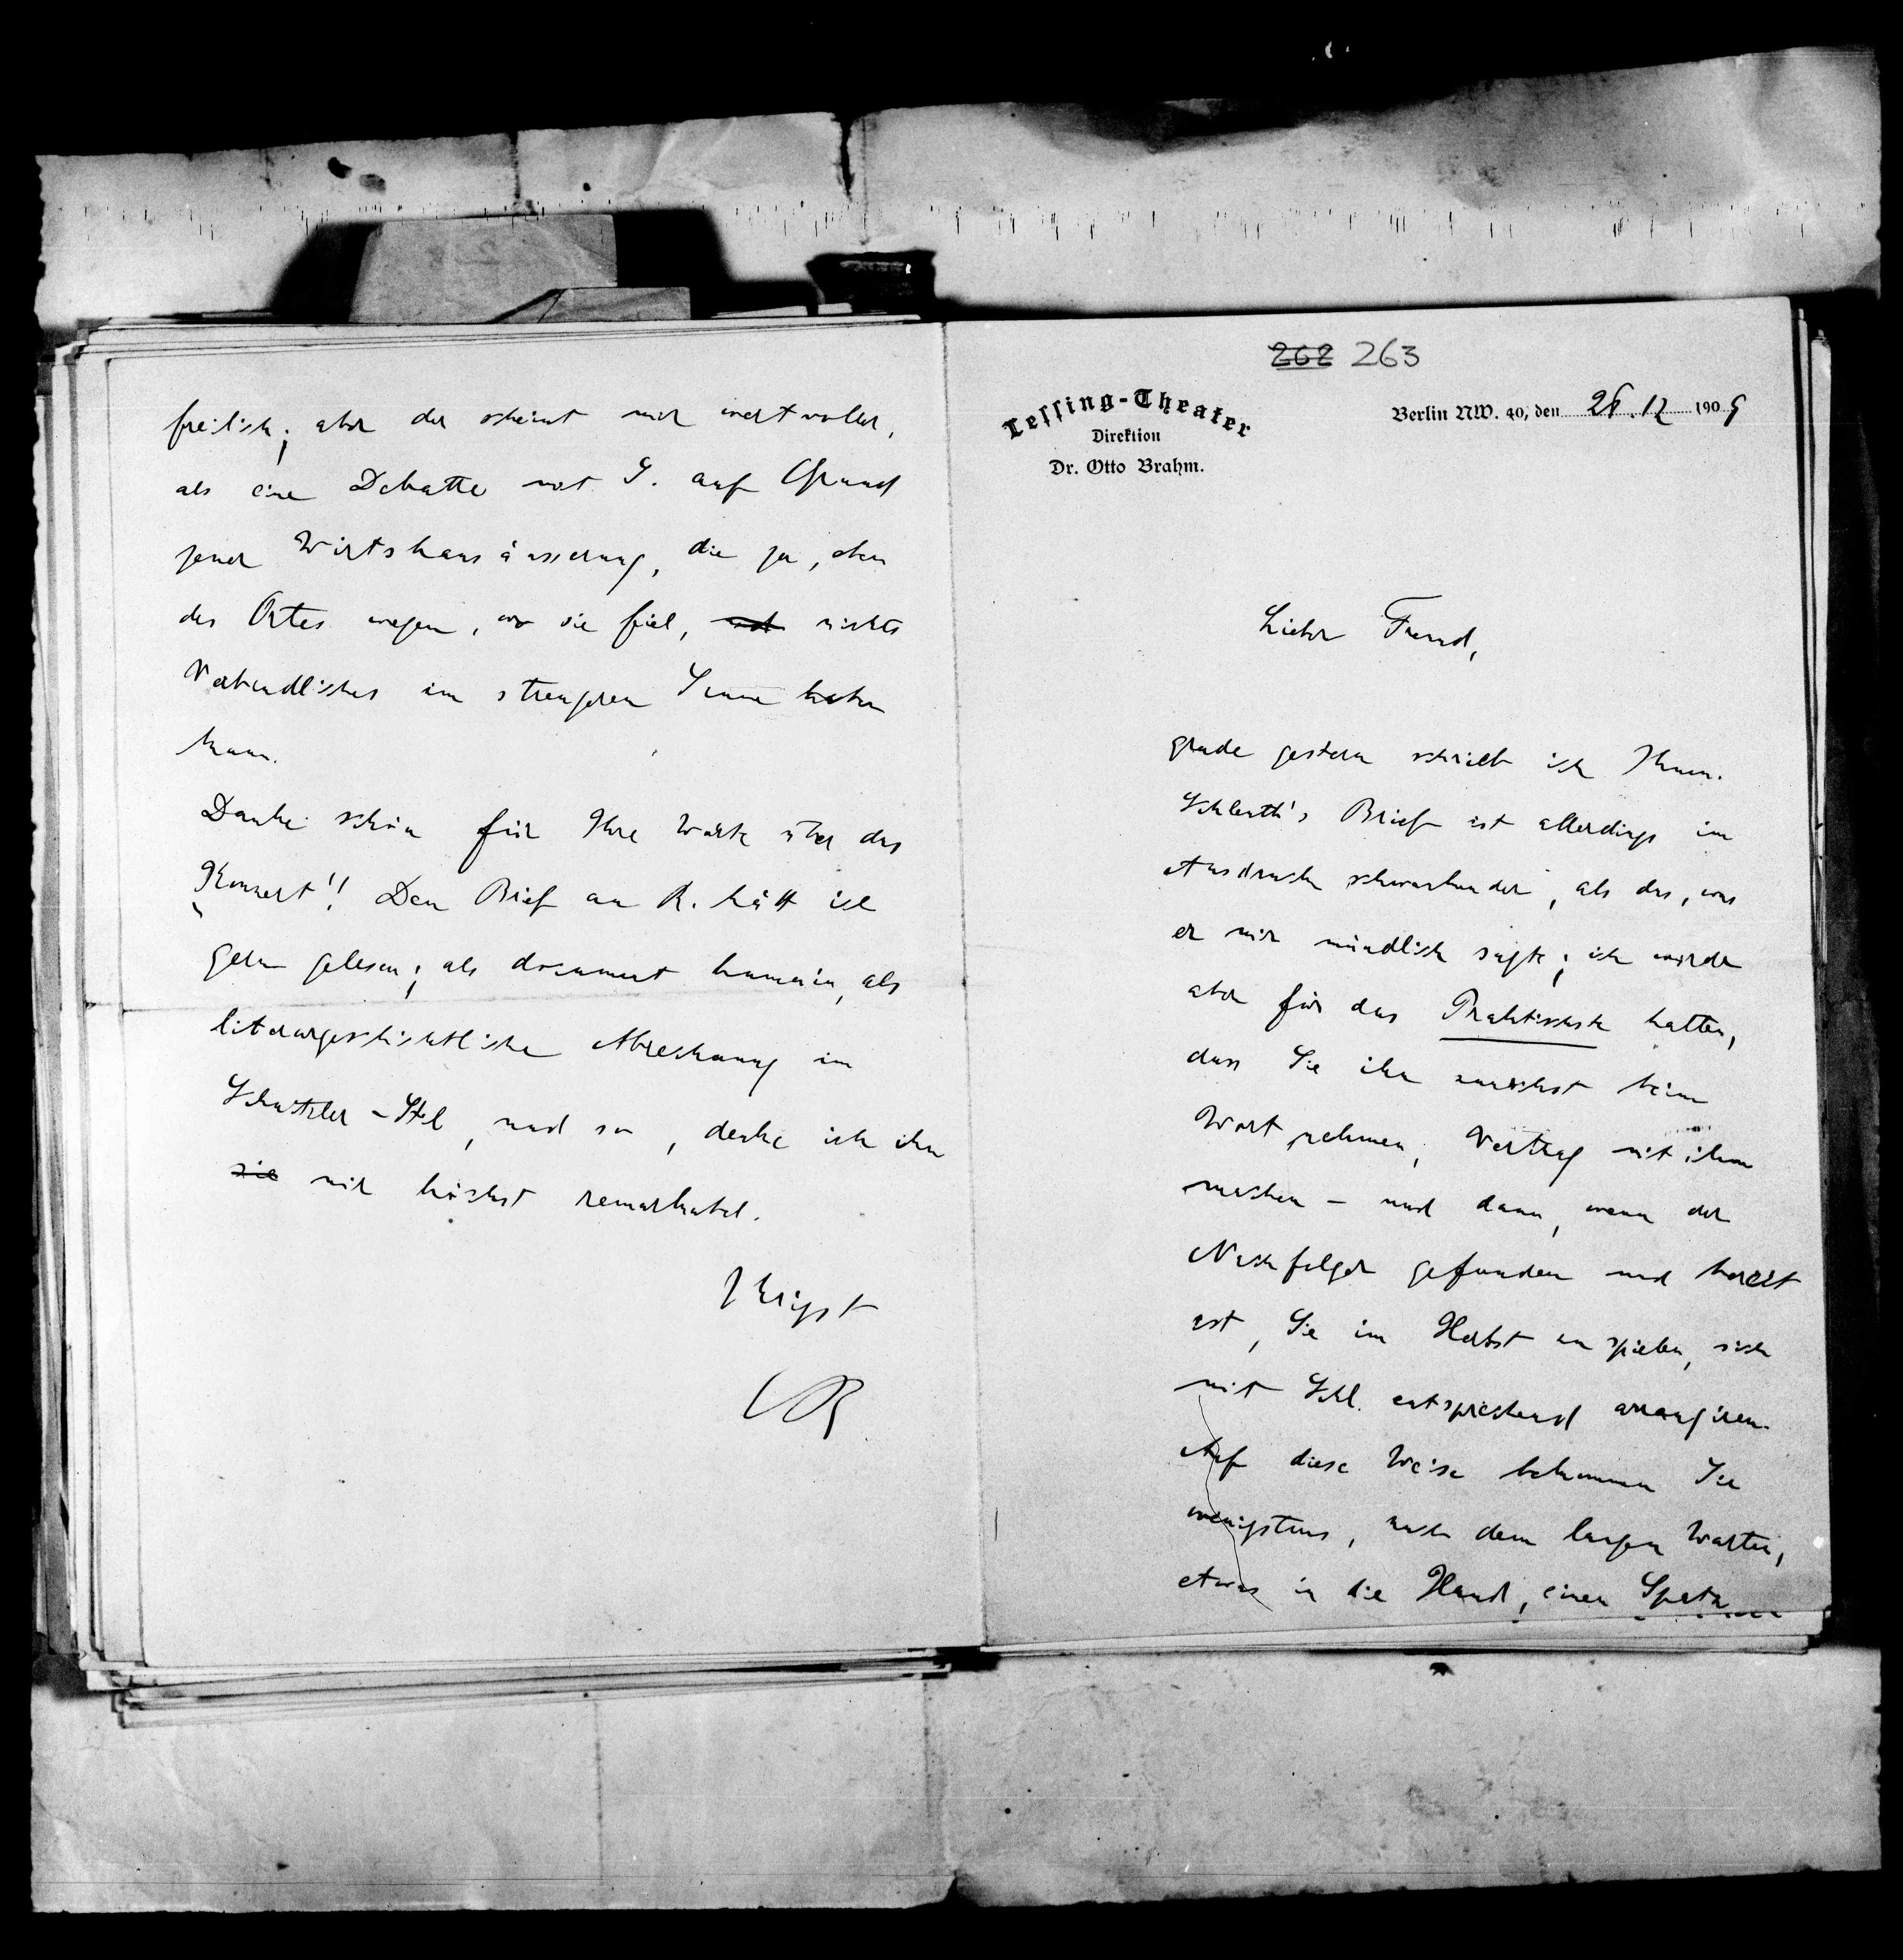 262 263
Lessing-Theater
Direktion
Dr. Otto Brahm.
Berlin NW. 40, den 28.12 1909
Lieber Freund,
grade gestern schrieb ich Ihnen.
Schlenth's Brief ist allerdings im
Ausdruck schwankender, als das, was
er mir mündlich sagte; ich würde
aber für das Praktischste halten,
dass Sie ihn zunächst beim
Wort nehmen, Vertrag mit ihm
machen – und dann, wenn der
Nachfolger gefunden und bereit
ist, Sie im Herbst zu spielen, sich
mit Schl. entsprechend arrangiren.
Auf diese Weise bekommen Sie
wenigstens, nach dem langen Warten,
etwas in die Hand, einen Spatz
freilich; aber der scheint mir wertvoller,
als eine Debatte mit S. auf Grund
jener Wirtshausäusserung, die ja, eben
des Ortes wegen, wo sie fiel, nichts
Verbindliches im strengeren Sinne haben
kann.
Danke schön für Ihre Worte über das
„Konzert“! Den Brief an R. hätt ich
gern gelesen; als document humain, als
literargeschichtliche Abrechnung im
Schnitzler-Stil, und so, denke ich ihn
sie mir höchst remarkabel.
Ihrigst
OB